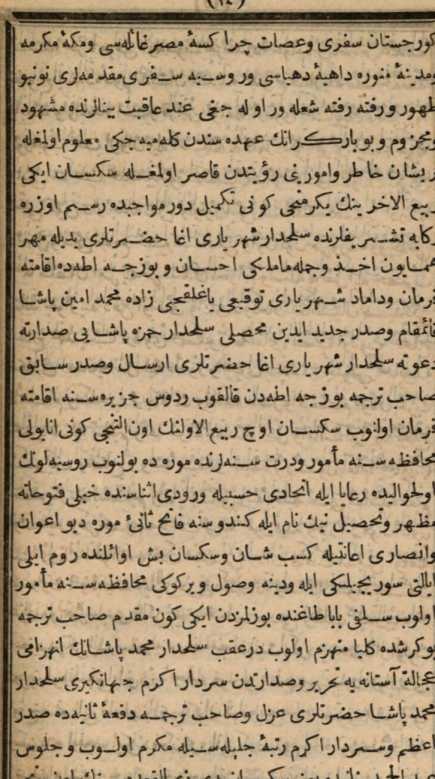 (١٤)
كورجستان سفرى وعصات چرا كسهٔ مصر غائله‌سى ومكهٔ مكرمه
ومدينهٔ منوره داهيهٔ دهياسى ور وسيه سفرى مقدمه‌لرى نونبو
ظهور ورفته رفته شعله ور اوله جغى عند عاقبت بينانرنده مشهود
ومجزوم و بو بارگرانك عهده سندن كله‌ميه جكى معلوم اولمغله
پريشان خاطر وامورينى رؤيتدن قاصر اولمغله سكسان ايكى
ربيع الاخر ينك يكرمنجى كونى تكميل دور مواجبده رسم اوزره
ركابه تشمر يفلرنده سلحدار شهر يارى اغا حضرتلرى يديله مهر
همايون اخذ وجمله ماملكى احسان و بوزجه اطه‌ده اقامته
فرمان وداماد شهر يارى توقيعى ياغلقجى زاده محمد امين پاشا
قائمقام وصدر جديد ايدين محصلى سلحدار حمزه پاشايى صدارته
دعوته سلحدار شهر يارى اغا حضرتلرى ارسال وصدر سابق
صاحب ترجمه بوزجه اطه‌دن قالقوب ردوس جزيره سنه اقامته
فرمان اولنوب سكسان اوچ ربيع الاولنك اون التنجى كونى انابولى
محافظه سنه مأمور ودرت سنه‌لرنده موره ده بولنوب روسيه‌لونك
اولحواليده رعايا ايله اتحادى حسبيله ورودى اثناسنده خيلى فتوحاته
مظهر وتحصيل نيك نام ايله كندوسنه فاتح ثانئ موره ديو اعوان
وانصارى اعانتيله كسب شان وسكسان بش اوائلنده روم ايلى
ايالتى سور يجيلكى ايله ودينه وصول و يركوكى محافظه سنه مأمور
اولوب سلفى بابا طاغنده بوزلمزدن ايكى كون مقدم صاحب ترجمه
يوكرشده كليا منهزم اولوب درعقب سلحدار محمد پاشانك انهزامى
عجالة آستانه يه تحرير وصدارتدن سردار اكرم جهانكيرى سلحدار
محمد پاشا حضرتلرى عزل وصاحب ترجمه دفعهٔ ثانيه‌ده صدر
اعظم وسردار اكرم رتبهٔ جليله‌سيله مكرم اولوب و جلوس